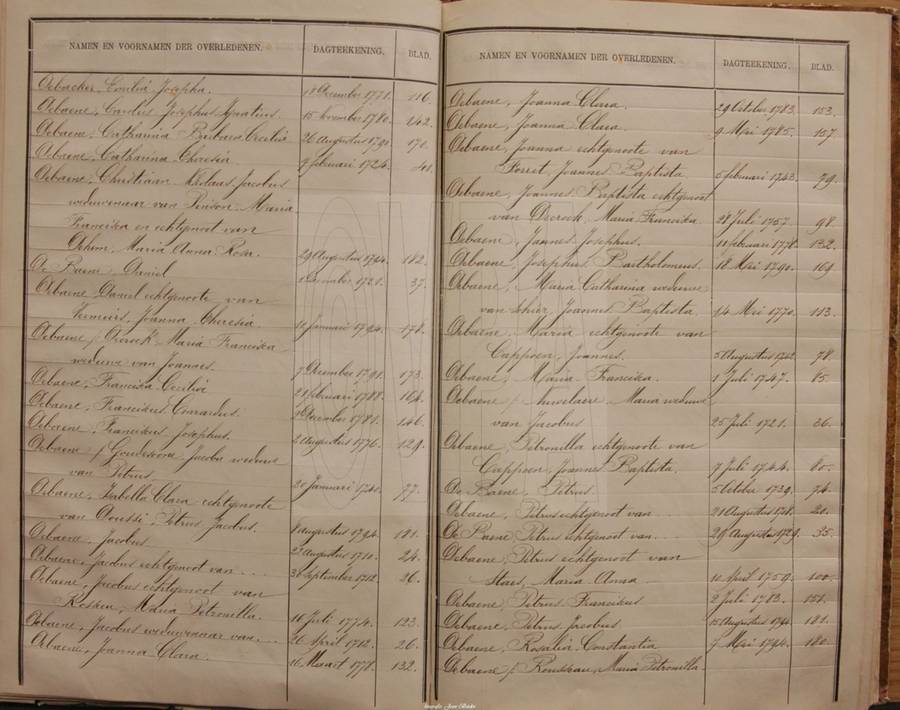 NAMEN EN VOORNAMEN DER OVERLEDENEN. DAGTEEKENING. BLAD.
Debacker, Josepha. 18 December 1771. 116.
Debaene, Carolus Josephus Ignatius. 15 1780. 142.
Debaene, Catharina Barbara Cecilia 26 Augustus 1790 170.
Debaene, Catharina Theresia 9 februari 1724.
Debaene, Christiaan Nikolaas Jacobus
weduwenaar van Maria
Francisca en echtgenoot van
Maria Anna Rosa. 29 Augustus 1794. 182.
De Baene, Daniel 1721. 37.
Debaene, Daniel echtgenoote van
Vermeirs, Joanna Theresia 10 Januari 1794. 178.
Debaene / Maria Francisca
weduwe van Joannes. 7 December 1791. 173.
Debaene, Francisca Cecilia 21 februari 1788. 164.
Debaene, Franciskus Conrardus. December 1781. 146.
Debaene, Franciskus Josephus. 2 Augustus 1776. 129.
Debaene / Jacoba weduwe
van Petrus. 20 Januari 77.
Debaene, Isabella Clara echtgenoote
van Petrus Jacobus. 8 Augustus 1794 181.
Debaene, Jacobus 27 Augustus 1710. 24.
Debaene, Jacobus echtgenoot van ... 30 September 1712. 26.
Debaene, Jacobus echtgenoot van
Maria Petronilla. 16 Juli 1774. 123.
Debaene, Jacobus weduwenaar van ... 26 April 1712. 26.
Debaene, Joanna Clara. 16 Maart 1778. 132.
NAMEN EN VOORNAMEN DER OVERLEDENEN. DAGTEEKENING. BLAD.
Debaene, Joanna Clara. 29 October 1783. 153.
Debaene, Joanna Clara. 9 Mei 1785. 157
Debaene, Joanna echtgenoote van
Ferret, Joannes Baptista. februari 1743. 79.
Debaene, Joannes Baptista echtgenoot
van Maria Franciska. 28 Juli 1757. 98.
Debaene, Joannes Josephus. 11 februari 1778. 132.
Debaene, Josephus Bartholomeus. 18 Mei 1790. 169.
Debaene, Maria Catharina weduwe
van Joannes Baptista. 14 Mei 1770. 113.
Debaene, Maria echtgenoote van
Cappoen, Joannes. 5 Augustus 1742 78.
Debaene, Maria Franciska. 1 Juli 1747. 85.
Debaene / Maria weduwe
van Jacobus 25 Juli 1721. 36.
Debaene, Petronilla echtgenoote van
Cappoen, Joannes Baptista. 7 Juli 1744. 80.
De Baene, Petrus 5 October 1739. 74.
Debaene, Petrus echtgenoot van ... 21 Augustus
De Baene Petrus echtgenoot van ... 29 Augustus 1729. 35.
Debaene, Petrus echtgenoot van
Maria Anna 10 April 1759. 100.
Debaene, Petrus Franciskus 2 Juli 1783. 151.
Debaene, Petrus Jacobus. 15 Augustus 1794 181.
Debaene, Rosalia Constantia 7 Mei 1794. 180.
Debaene / Rousseau, Maria Petronilla.